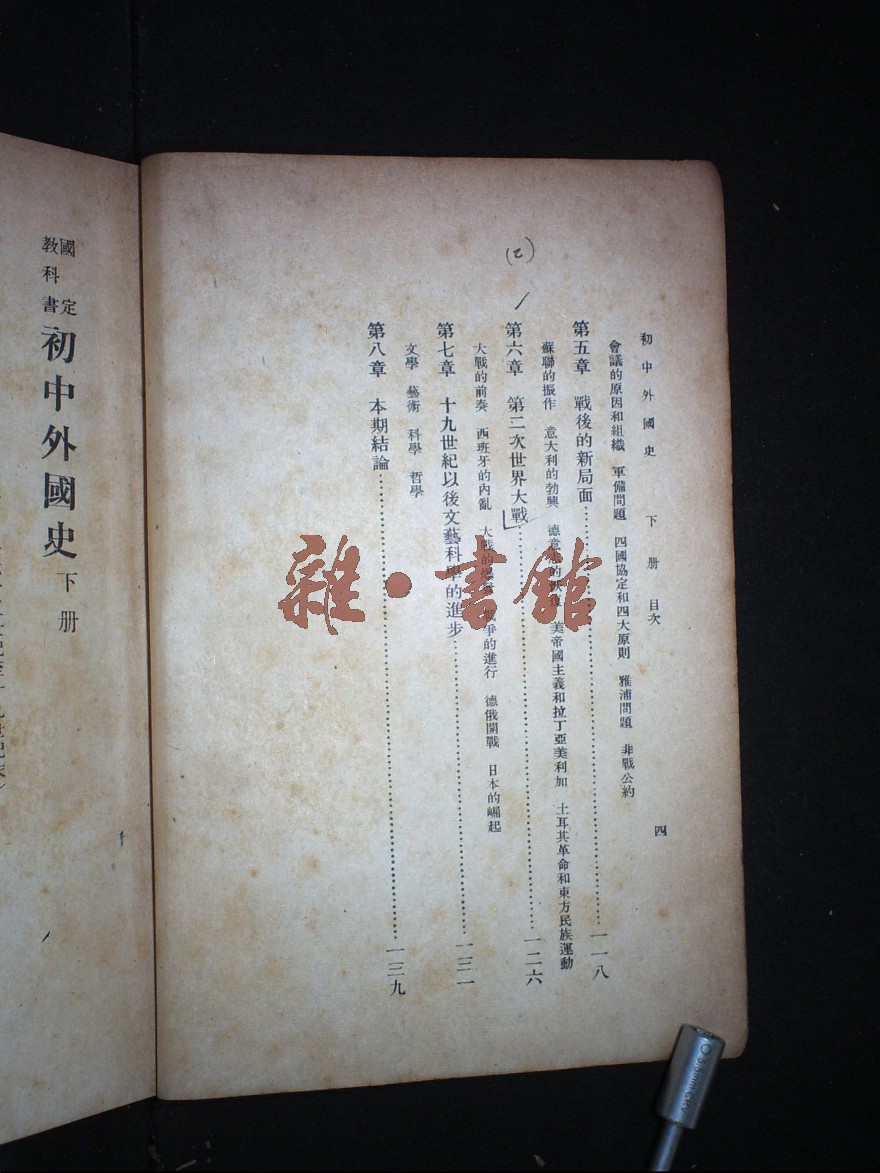 初中外國史 下册 目次 四
會議的原因和組織 軍備問題 四國協定和四大原則 雅浦問題 非戰公約
第五章 戰後的新局面 一一八
蘇聯的振作 意大利的勃興 德意志的 美帝國主義和拉丁亞美利加 土耳其革命和東方民族運動
(七)
第六章 第二次世界大戰 一二六
大戰的前奏 西班牙的內亂 大戰的 戰爭的進行 德俄開戰 日本的崛起
第七章 十九世紀以後文藝科學的進步 一三一
文學 藝術 科學 哲學
第八章 本期結論 一三九
國定教科書 初中外國史 下册
雜·書館